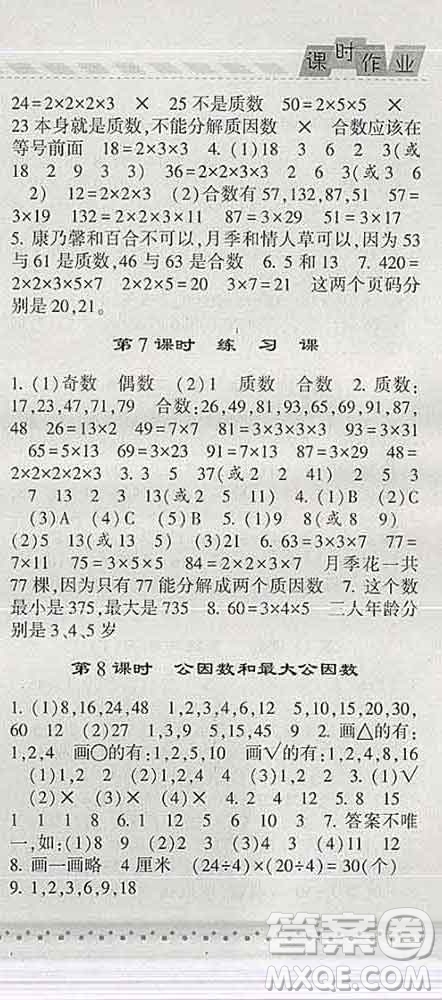 课时作业
24=2×2×2×3　×　25 不是质数　50=2×5×5　×
23 本身就是质数,不能分解质因数　×　合数应该在
等号前面　18=2×3×3　4. (1)18　3　6　2　3(或
18　2　9　3　3)　36=2×2×3×3　3　6(或 3　6
2)　12=2×2×3　(2)合数有 57,132,87,51　57=
3×19　132=2×2×3×11　87=3×29　51=3×17
5. 康乃馨和百合不可以,月季和情人草可以,因为 53
与 61 是质数,46 与 63 是合数　6. 5 和 13　7. 420=
2×2×3×5×7　2×2×5=20　3×7=21　这两个页码分
别是 20,21。
第 7 课时　练　习　课
1. (1)奇数　偶数　(2)1　质数　合数　2. 质数:
17,23,47,71,79　合数:26,49,81,93,65,69,91,87,
48　26=2×13　49=7×7　81=3×3×3×3　93=3×31
65=5×13　69=3×23　91=7×13　87=3×29　48=
2×2×2×2×3　3. 3　5　37(或 2　2　41)　2　5　3
7　13　2　3　13(或 7　2　9)　4. (1)B　(2)C
(3)A　(4)C　(5)C　5. (1)9　8(或 8　9)
(2)5　13(或 13　5)　(3)21　6. 65=5×13　77=
7×11　75=3×5×5　81=3×3×3×3　月季花一共
77 棵,因为只有 77 能分解成两个质因数　7. 这个数
最小是 375,最大是 735　8. 60=3×4×5　三人年龄分
别是 3、4、5 岁
第 8 课时　公因数和最大公因数
1. (1)8,16,24,48　1,2,3,4,6,12　5,10,15,20,30,
60　12　(2)27　1,3,9　5,15,45　9　2. 画△的有:
1,2,4　画○的有:1,2,5,10　画√的有:1,2,4,8,16
(1)1,2　(2)1,2,4　(3)1,2　(4)1,2　3. (1)√
(2)×　(3)×　(4)×　4. 2　4　12　5. 8　15
1　1　1　8　6. 1　12　5　6　10　3　7. 答案不唯
一,如:(1)8　9　(2)2　3　(3)4　3　(4)11　12
8. 画一画略　4 厘米　(24÷4)×(20÷4)=30(个)
9. 1,2,3,6,9,18
答案圈
MXQE.COM